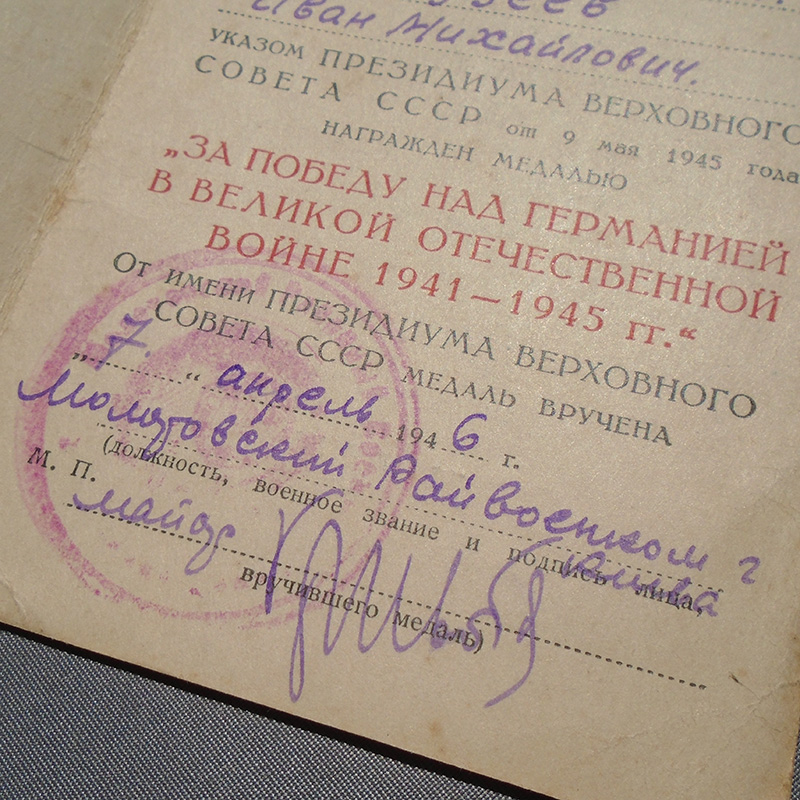 Иван Михайлович.
УКАЗОМ ПРЕЗИДИУМА ВЕРХОВНОГО
СОВЕТА СССР от 9 мая 1945 года
НАГРАЖДЕН МЕДАЛЬЮ
„ЗА ПОБЕДУ НАД ГЕРМАНИЕЙ
В ВЕЛИКОЙ ОТЕЧЕСТВЕННОЙ
ВОЙНЕ 1941—1945 гг.“
От имени ПРЕЗИДИУМА ВЕРХОВНОГО
СОВЕТА СССР МЕДАЛЬ ВРУЧЕНА
„7.“ апрель 1946 г.
Молотовский Райвоенком г
(должность, военное звание и подпись лица,
М. П.
майор
вручившего медаль)